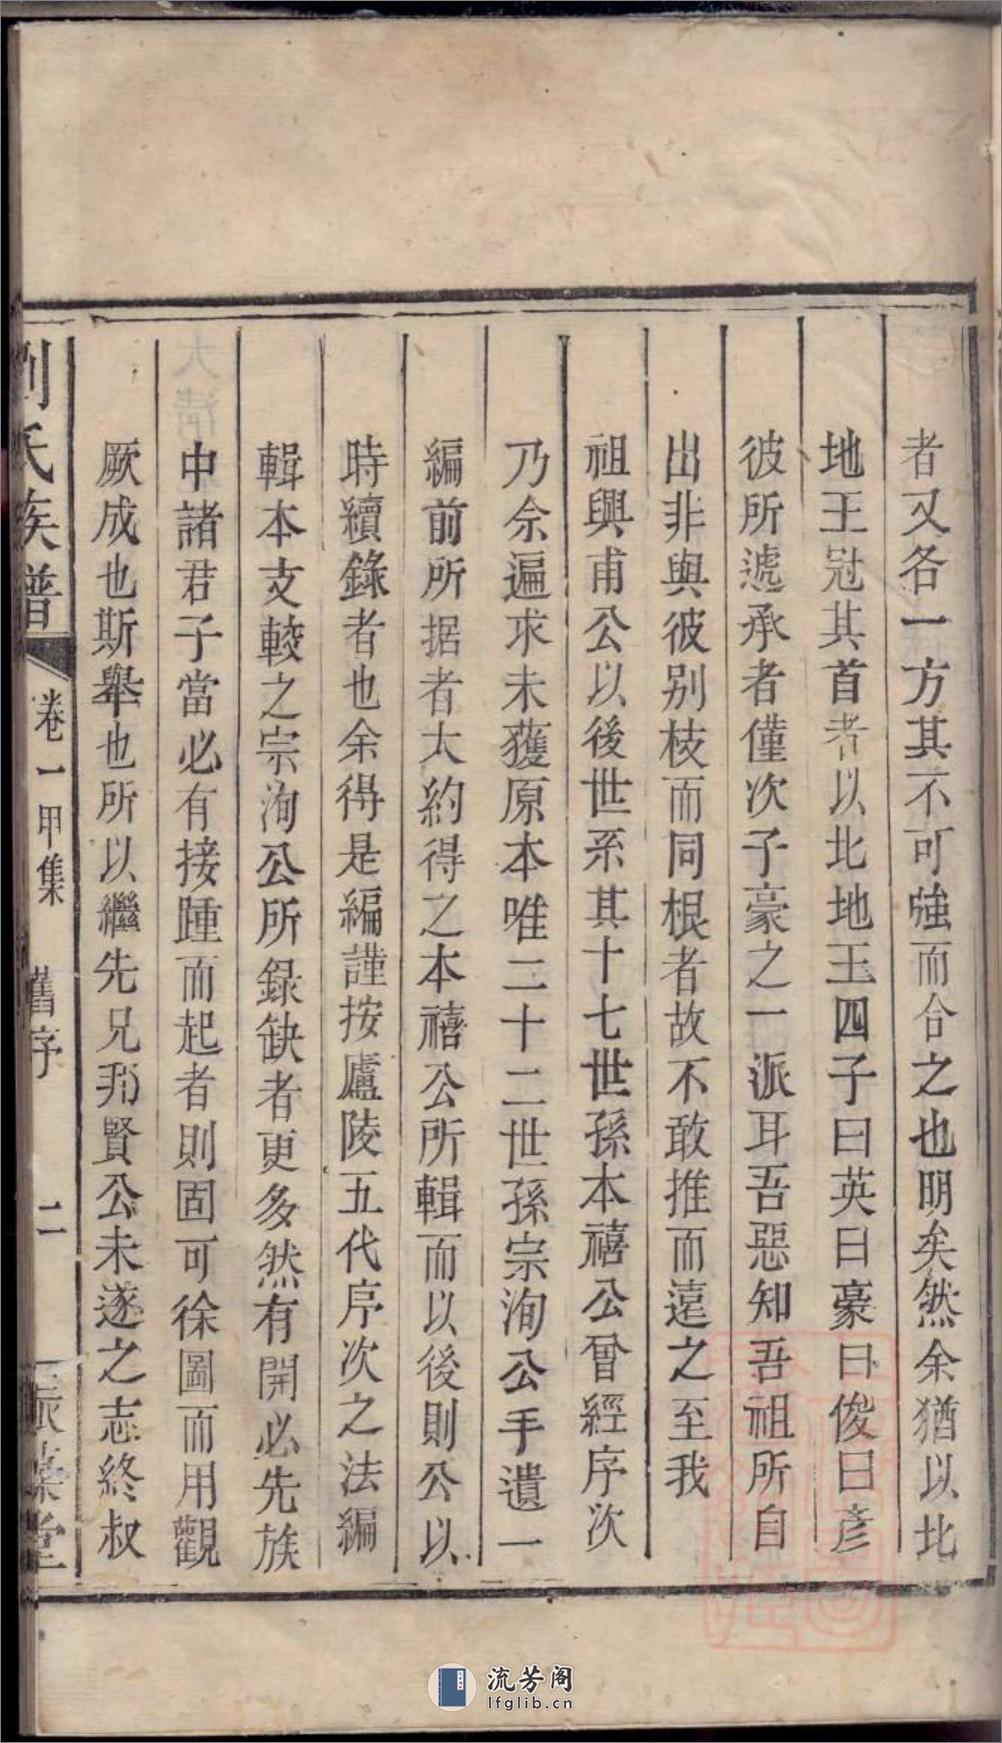 者又各一方其不可強而合之也明矣然余猶以北
地王冠其首者以北地王四子曰英曰豪曰俊曰彦
彼所遞承者僅次子豪之一派耳吾惡知吾祖所自
出非與彼別枝而同根者故不敢推而遠之至我
祖興甫公以後世系其十七世孫本禧公曾經序次
乃余遍求未獲原本唯二十二世孫宗洵公手遺一
編前所据者大約得之本禧公所輯而以後則公以
時續錄者也余得是編謹按廬陵五代序次之法編
輯本支較之宗洵公所録缺者更多然有開必先族
中諸君子當必有接踵而起者則固可徐圖而用觀
厥成也斯舉也所以繼先兄邦賢公未遂之志終叔
劉氏族譜 卷一甲集 舊序 二
流芳阁
lfglib.cn